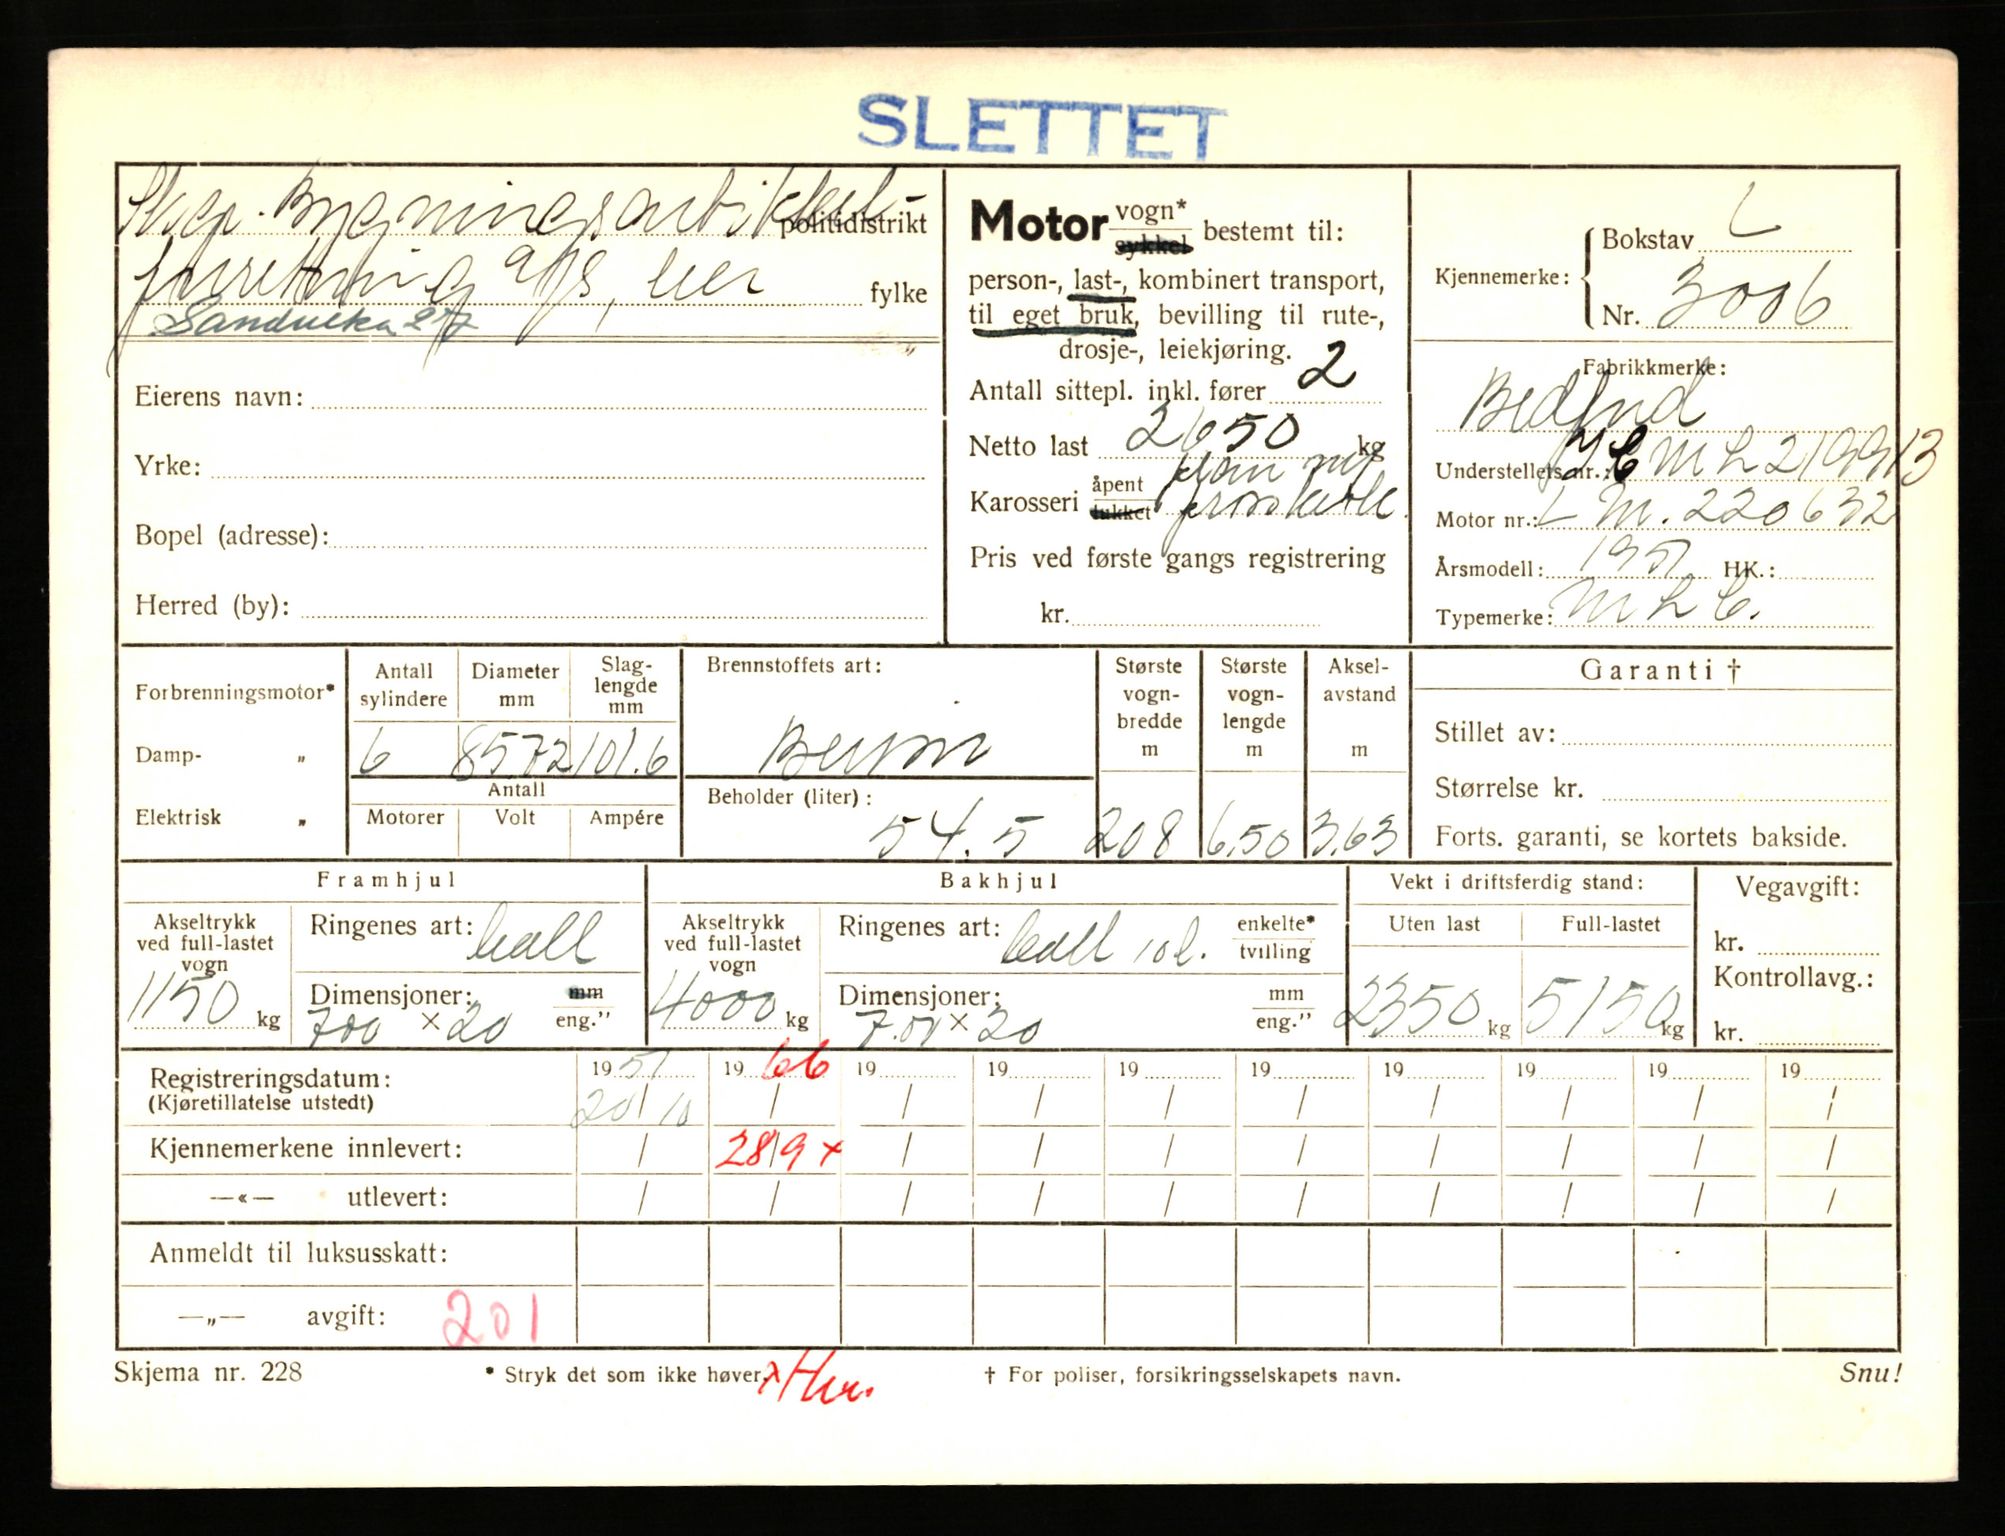 SLETTET
Bygningsartikkel-
politidistrikt
forretning a/s,
fylke
"
Eierens navn:
Yrke:
Bopel (adresse):
Herred (by):
Motor vogn* sykkel bestemt til:
person-, last-, kombinert transport,
til eget bruk, bevilling til rute-,
drosje-, leiekjøring.
Antall sittepl. inkl. fører 2
Netto last 2650 kg
Karosseri åpent lukket plan
Pris ved første gangs registrering
kr.
Kjennemerke: Bokstav L
Nr. 3006
Fabrikkmerke:
Bedford
Understellets nr.:
Motor nr.: L M. 220632
Årsmodell: 1951 HK.:
Typemerke: M L C.
Forbrenningsmotor*
Damp- "
Elektrisk "
Antall sylindere 6
Diameter mm 85.72
Slag-lengde mm 101.6
Antall
Motorer Volt Ampére
Brennstoffets art:
Bensin
Beholder (liter):
54.5
Største vogn-bredde m 208
Største vogn-lengde m 6.50
Aksel-avstand m 3.63
Garanti †
Stillet av:
Størrelse kr.
Forts. garanti, se kortets bakside.
Framhjul
Akseltrykk ved full-lastet vogn 1150 kg
Ringenes art:
Dimensjoner: mm eng."
700 × 20
Bakhjul
Akseltrykk ved full-lastet vogn 4000 kg
Ringenes art: enkelte* tvilling
Dimensjoner: mm eng."
7.00 × 20
Vekt i driftsferdig stand:
Uten last Full-lastet
2350 kg 5150 kg
Vegavgift:
kr.
Kontrollavg.:
kr.
19 51 19 66 19 19 19 19 19 19 19 19
Registreringsdatum:
(Kjøretillatelse utstedt) 20/10 / / / / / / / / /
Kjennemerkene innlevert: / 28/9 x / / / / / / / /
—«— utlevert: / / / / / / / / / /
Anmeldt til luksusskatt:
—„— avgift: 201
Skjema nr. 228
* Stryk det som ikke høver.
† For poliser, forsikringsselskapets navn.
Snu!